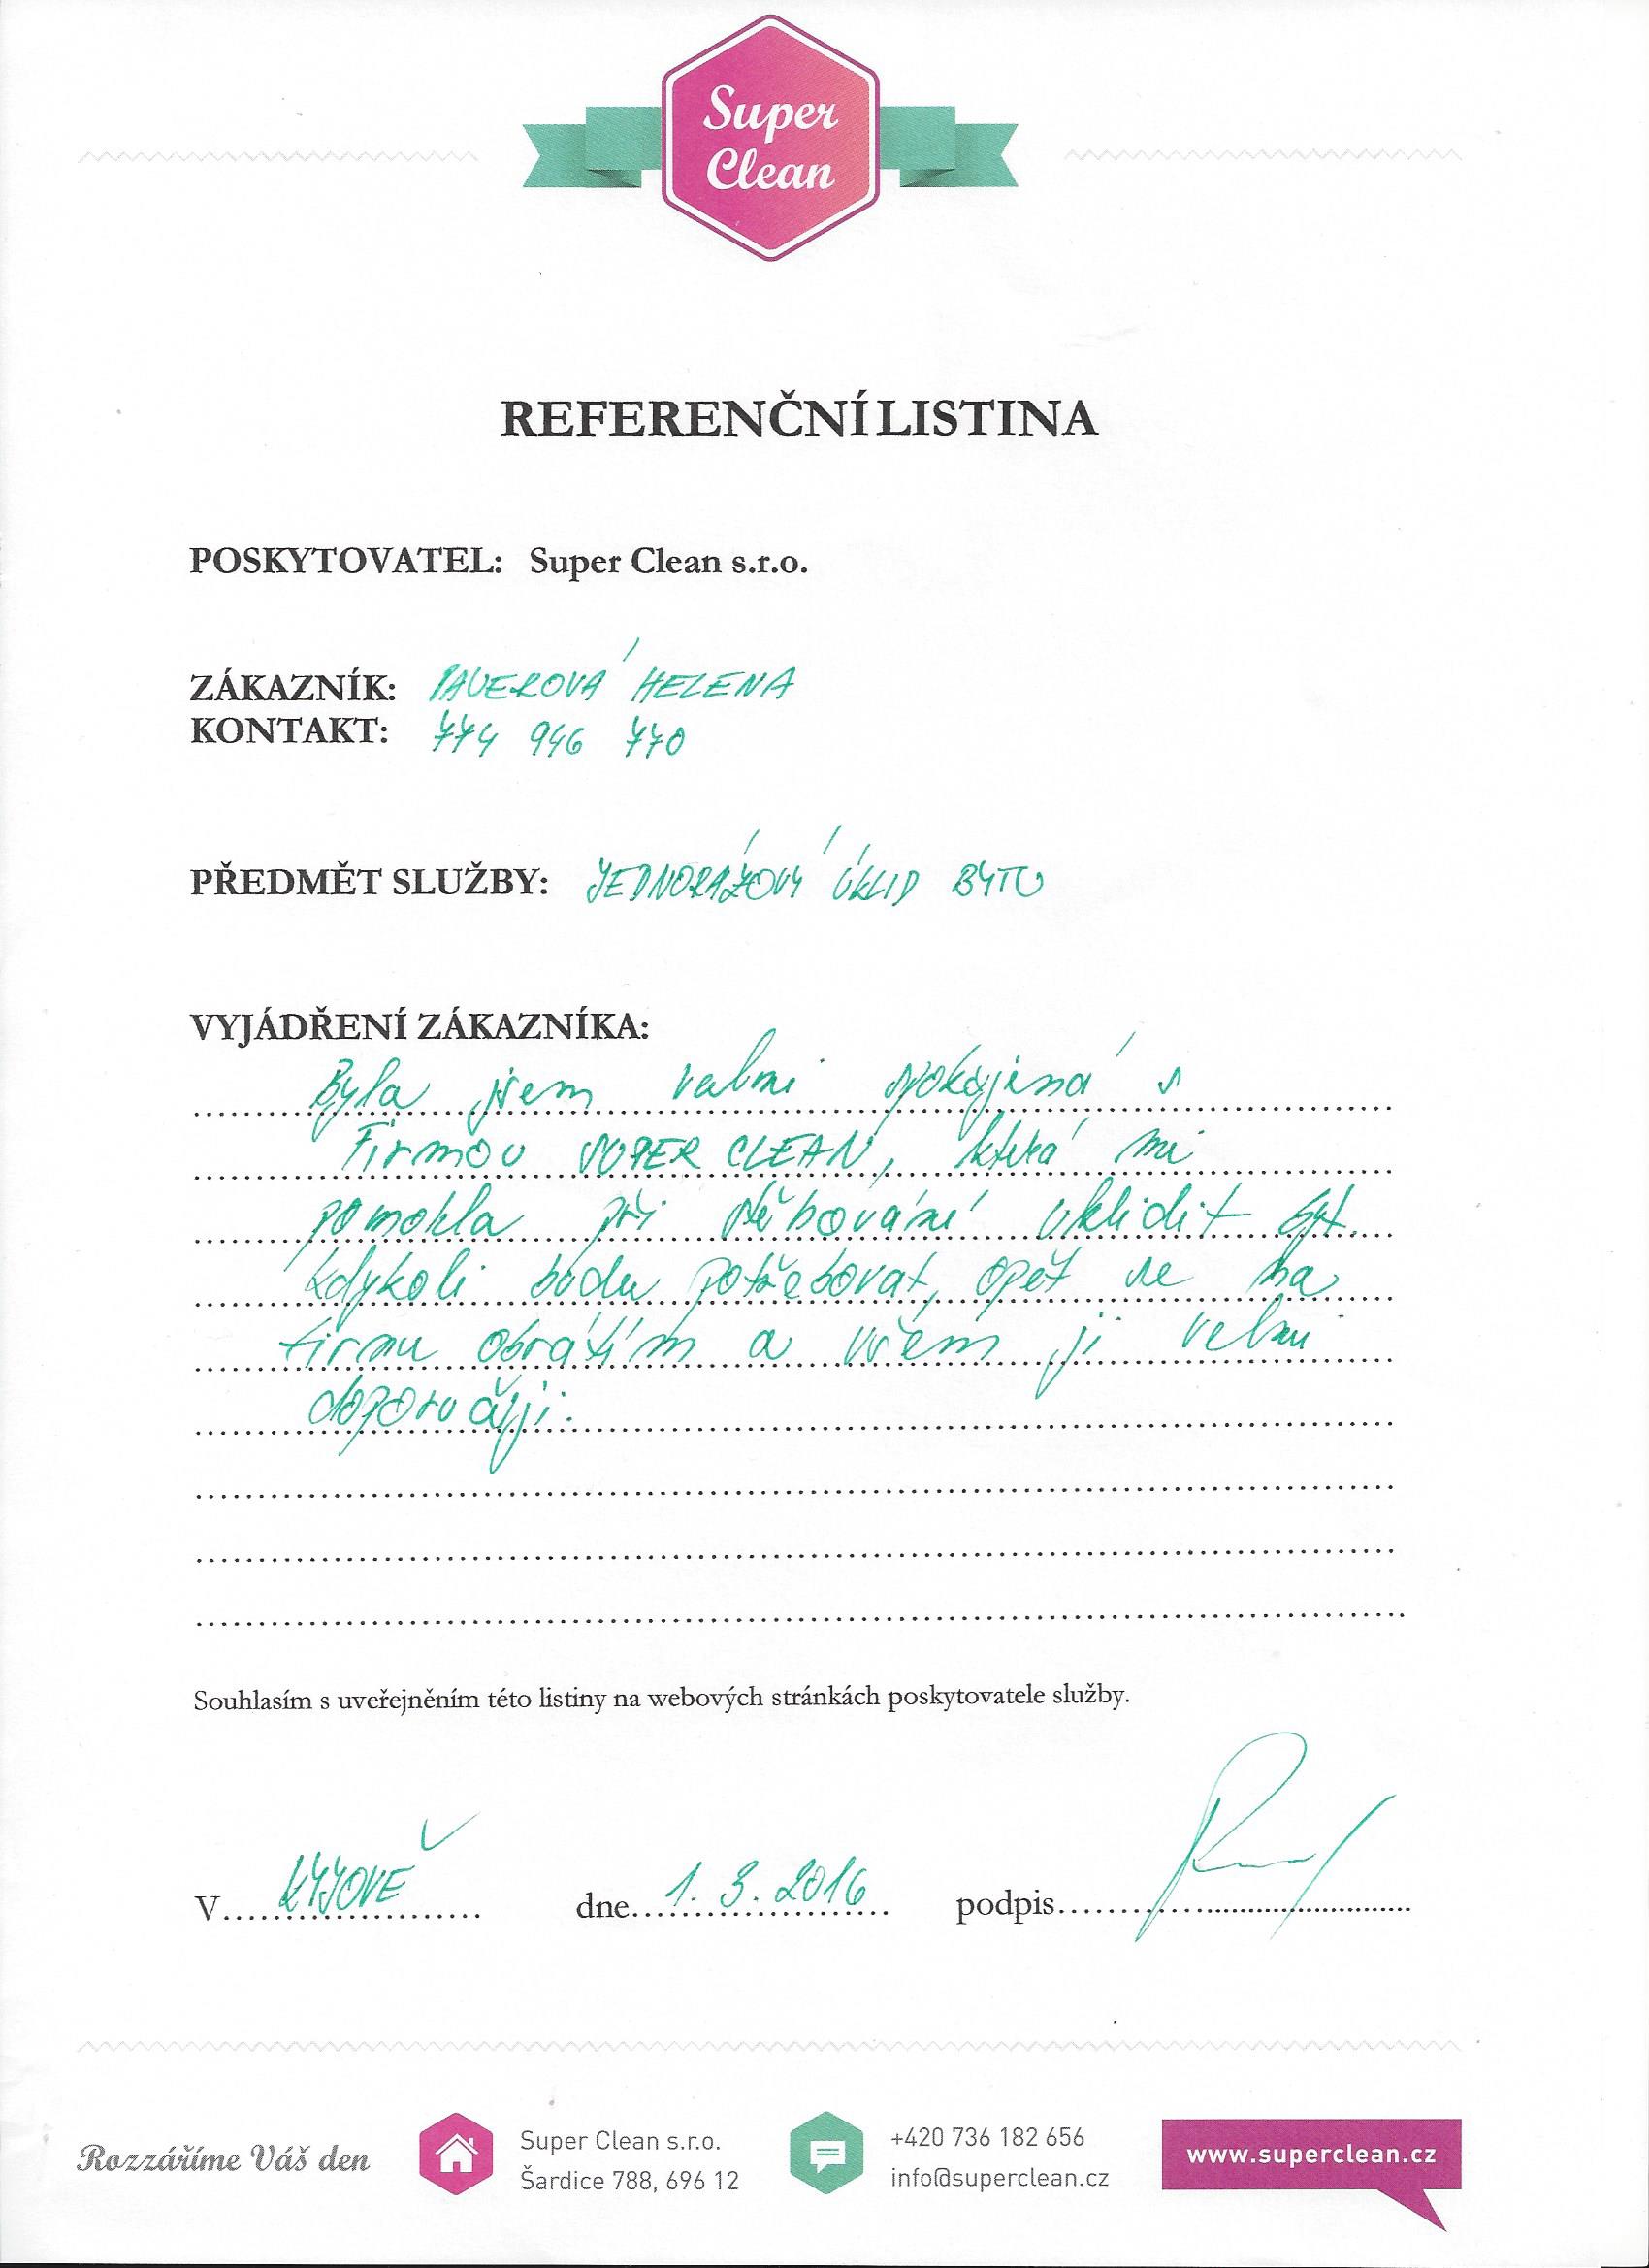 Super
Clean
REFERENČNÍ LISTINA
POSKYTOVATEL: Super Clean s.r.o.
ZÁKAZNÍK: PAUEROVÁ HELENA
KONTAKT: 774 946 770
PŘEDMĚT SLUŽBY: JEDNORÁZOVÝ ÚKLID BYTU
VYJÁDŘENÍ ZÁKAZNÍKA:
Byla jsem velmi spokojená s
Firmou SUPER CLEAN, která mi
pomohla při stěhování uklidit byt.
Kdykoli budu potřebovat, opět se na
firmu obrátím a všem ji velmi
doporučuji.
Souhlasím s uveřejněním této listiny na webových stránkách poskytovatele služby.
V KYJOVĚ dne 1. 3. 2016 podpis
Rozzáříme Váš den
Super Clean s.r.o.
Šardice 788, 696 12
+420 736 182 656
info@superclean.cz
www.superclean.cz